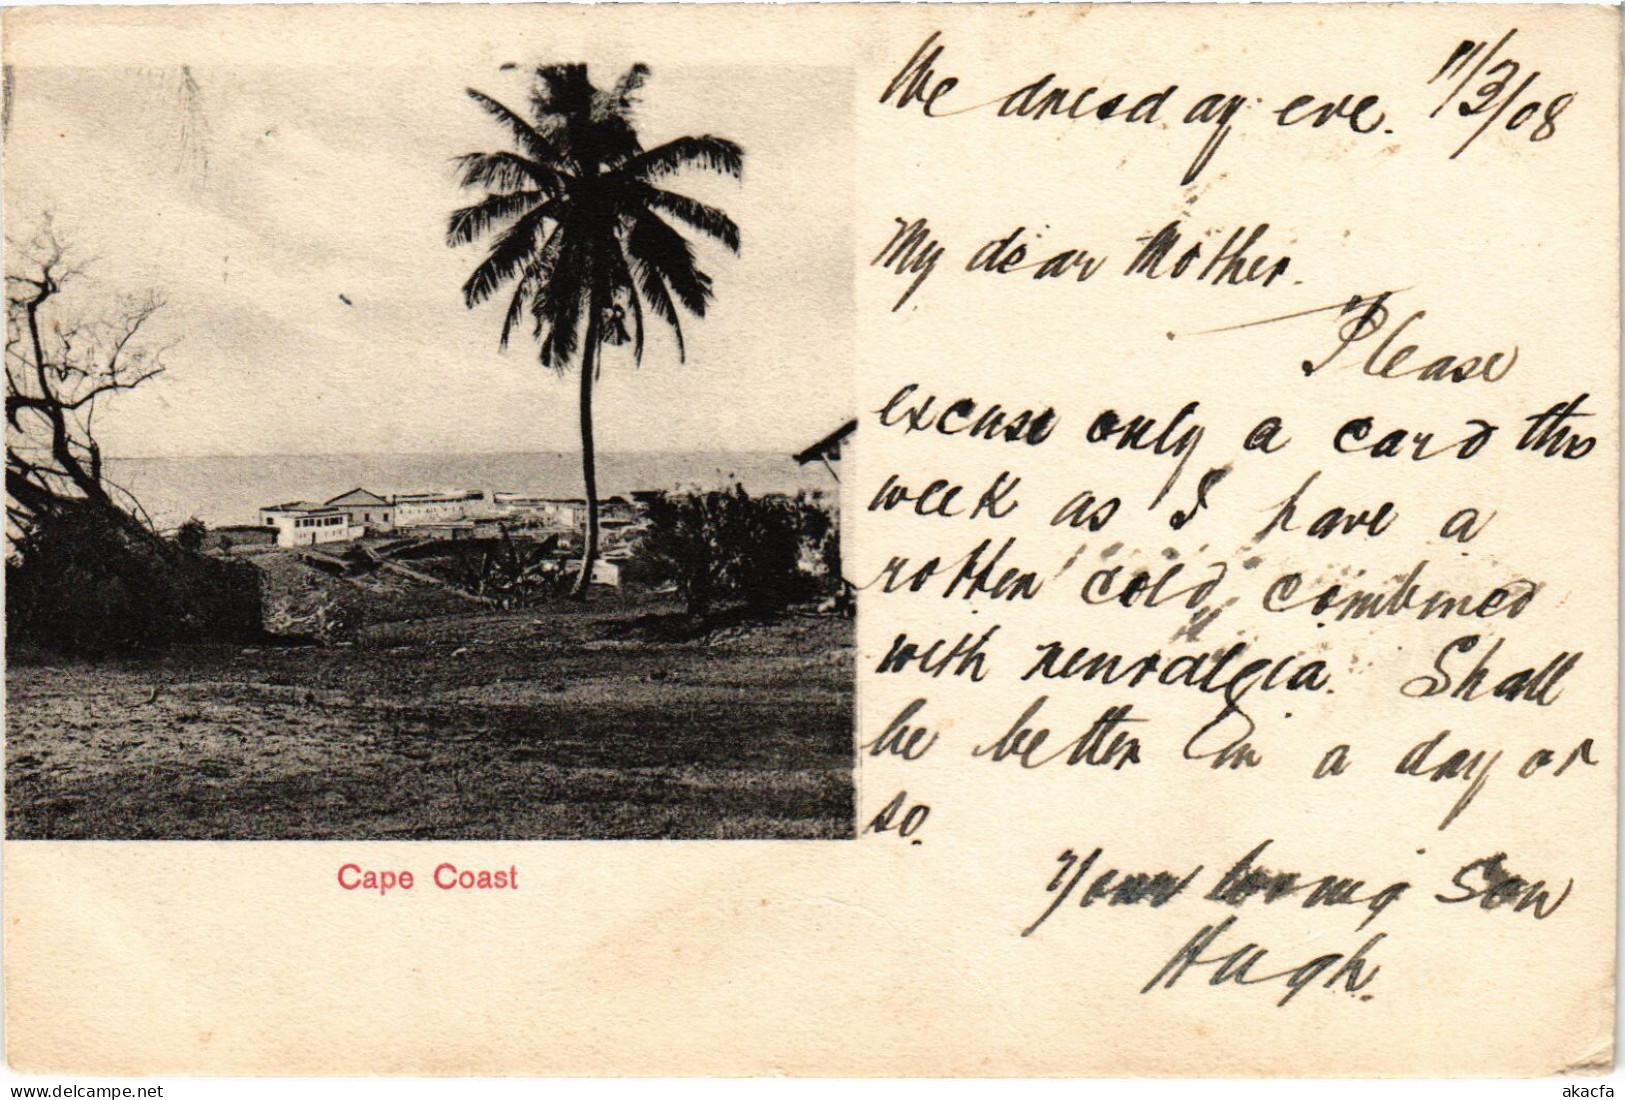 Wednesday eve. 11/3/08
My dear Mother.
Please
excuse only a card this
week as I have a
rotten cold, combined
with neuralgia. Shall
be better in a day or
so.
Your loving Son
Hugh.
Cape Coast
www.delcampe.net
akacfa